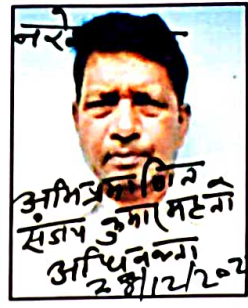 नरे
अभिप्रमाणित
संजय कुमार महतो
अधिवक्ता
28/12/202